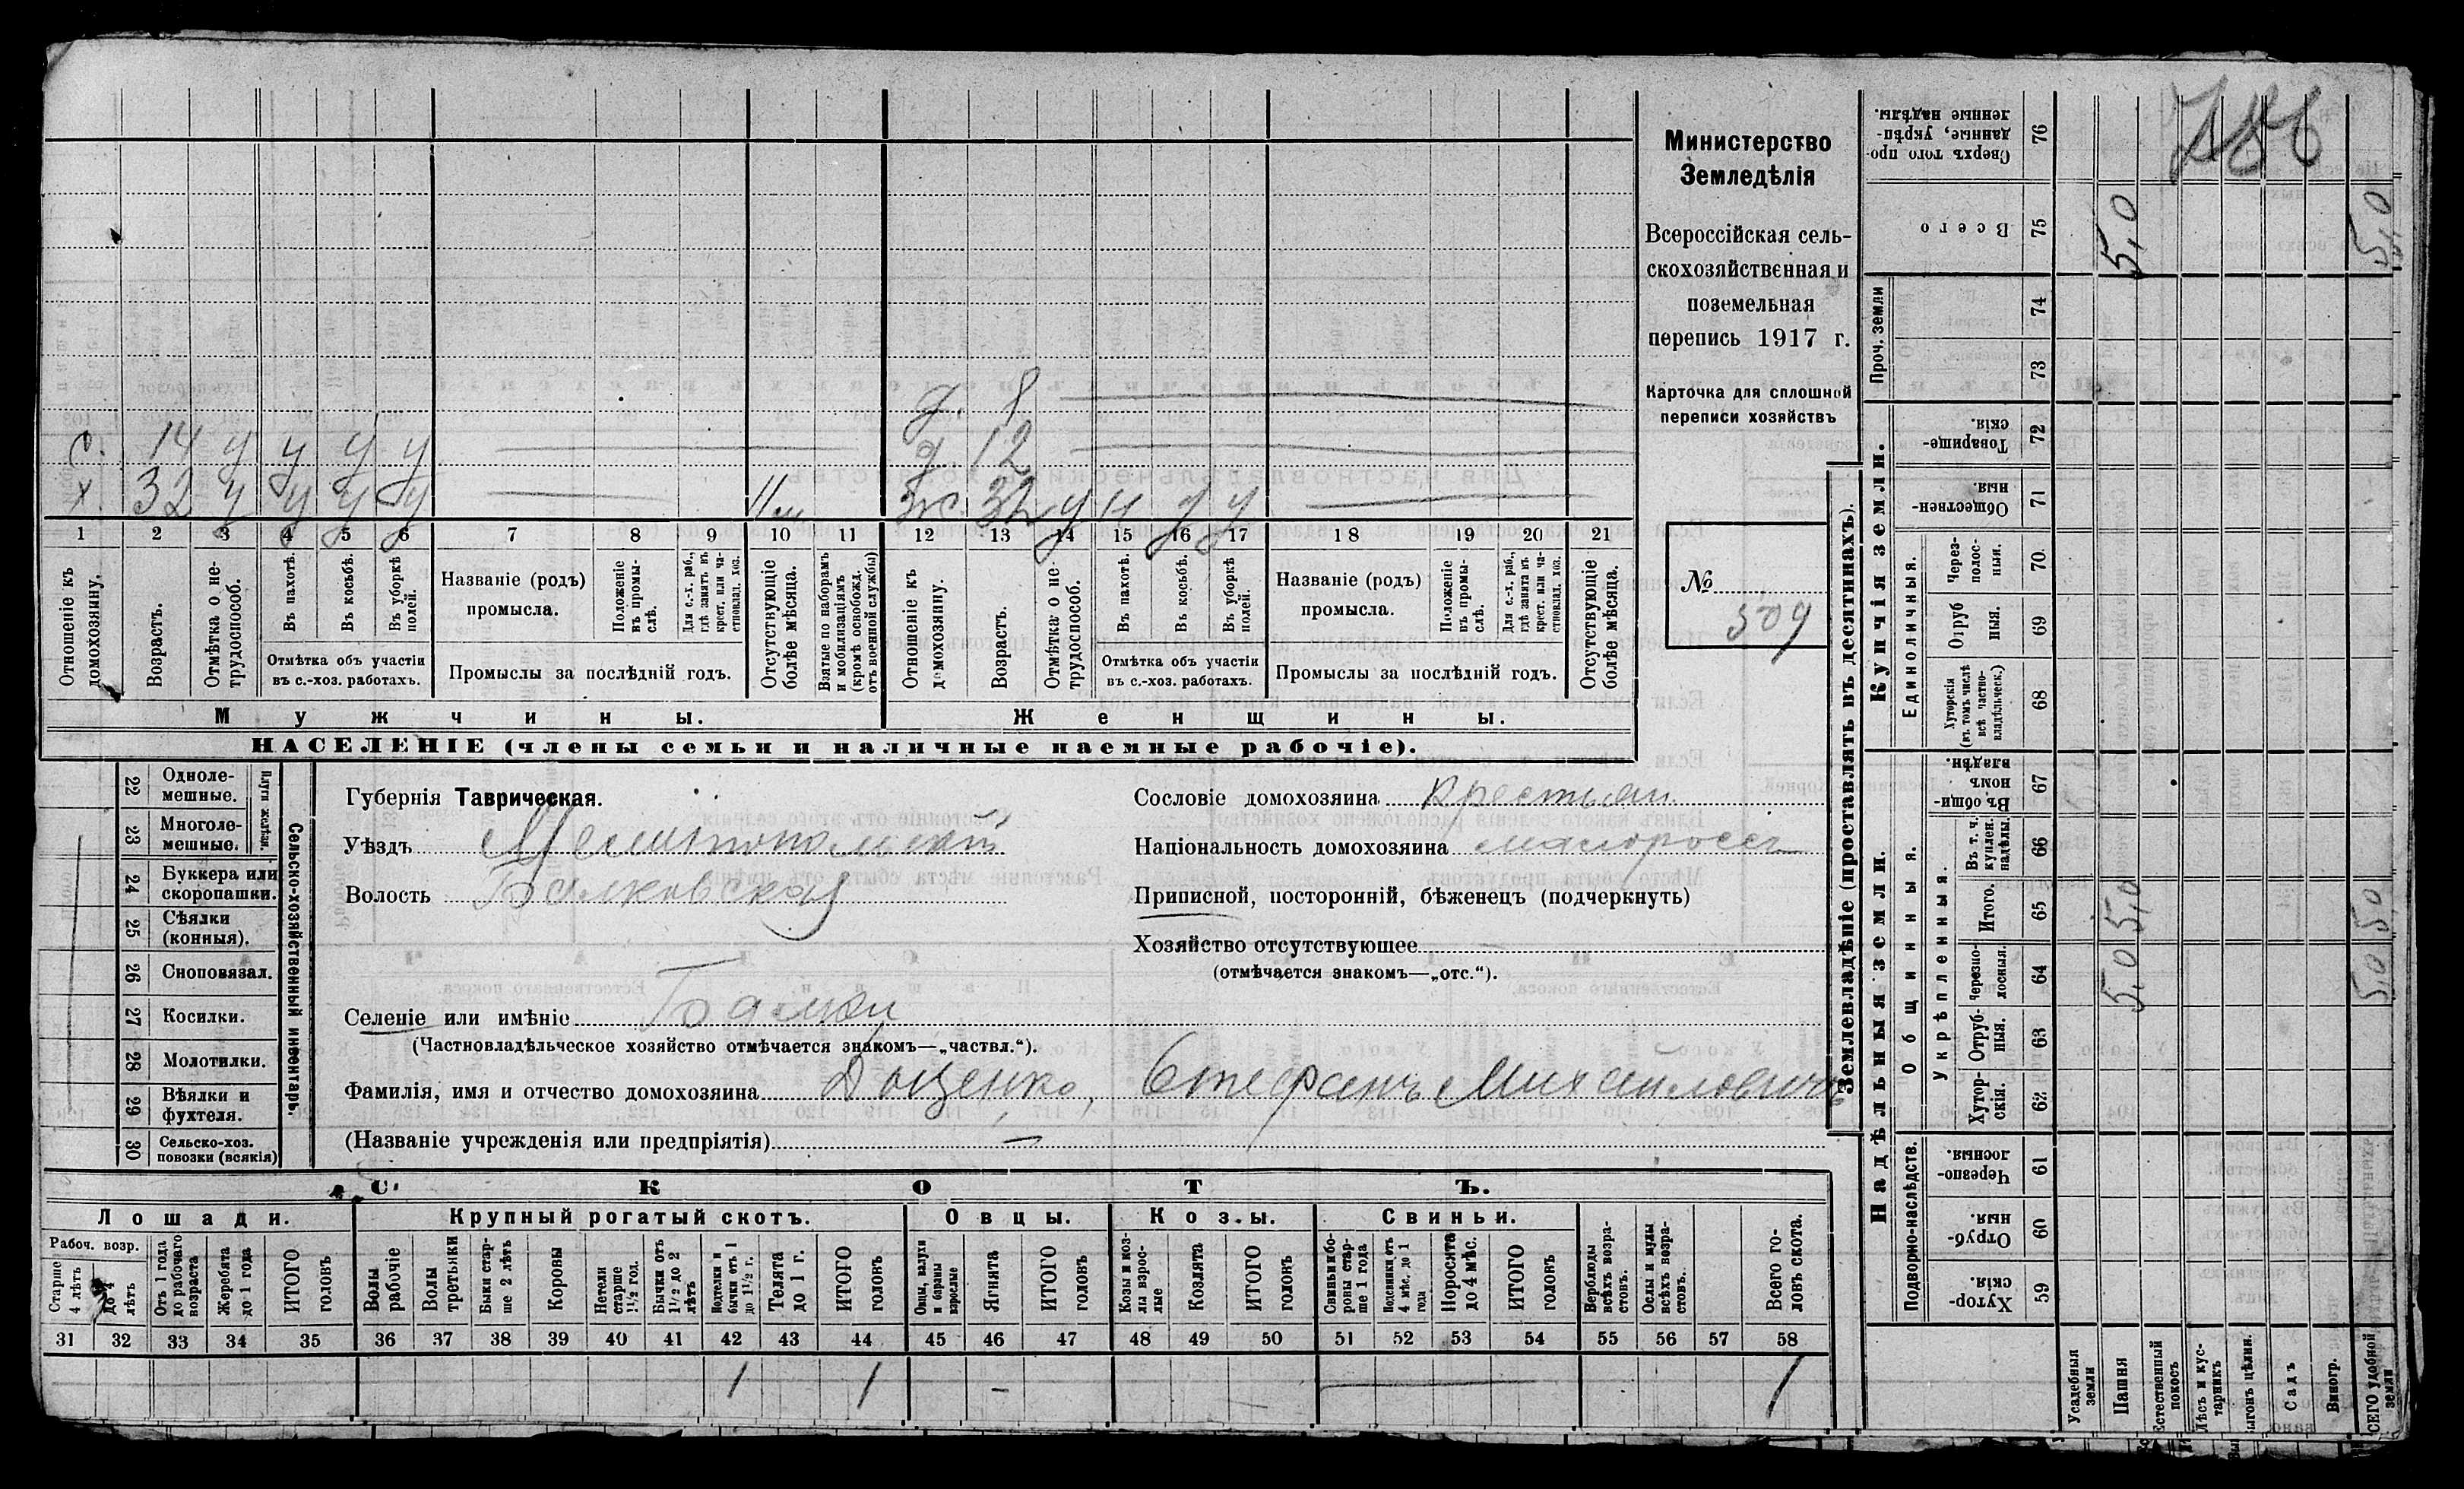 Министерство
Земледѣлія
Всероссійская сель-
скохозяйственная и
поземельная
перепись 1917 г.
Карточка для сплошной
переписи хозяйствъ
№
309
д. 8
с. 14 у у у у
д 12
х 32 у у у у
ж. 32 у н у у
1 2 3 4 5 6 7 8 9 10 11 12 13 14 15 16 17 18 19 20 21
Отношеніе къ домохозяину.
Возрастъ.
Отмѣтка о не-трудоспособ.
Въ пахотѣ.
Въ косьбѣ.
Въ уборкѣ полей.
Отмѣтка объ участіи
въ с.-хоз. работахъ.
Названіе (родъ)
промысла.
Положеніе въ промы-слѣ.
Для с.-х. раб., гдѣ занятъ въ крест. или ча-стновлад. хоз.
Промыслы за послѣдній годъ.
Отсутствующіе болѣе мѣсяца.
Взятые по наборамъ и мобилизаціямъ (кромѣ освобожд. отъ военной службы)
Отношеніе къ домохозяину.
Возрастъ.
Отмѣтка о не-трудоспособ.
Въ пахотѣ.
Въ косьбѣ.
Въ уборкѣ полей.
Отмѣтка объ участіи
въ с.-хоз. работахъ.
Названіе (родъ)
промысла.
Положеніе въ промы-слѣ.
Для с.-х. раб., гдѣ занята въ крест. или ча-стновлад. хоз.
Промыслы за послѣдній годъ.
Отсутствующіе болѣе мѣсяца.
Мужчины.
Женщины.
НАСЕЛЕНІЕ (члены семьи и наличные наемные рабочіе).
Сельско-хозяйственный инвентарь.
Плуги желѣзн.
22 Одноле-мешные.
23 Многоле-мешные.
24 Буккера или скоропашки.
25 Сѣялки (конныя).
26 Сноповязал.
27 Косилки.
28 Молотилки.
29 Вѣялки и фухтеля.
30 Сельско-хоз. повозки (всякія)
Губернія Таврическая.
Уѣздъ Мелитопольскій
Волость Балковская
Сословіе домохозяина крестьян.
Національность домохозяина малороссъ
Приписной, посторонній, бѣженецъ (подчеркнуть)
Хозяйство отсутствующее
(отмѣчается знакомъ—„отс.“).
Селеніе или имѣніе Балки
(Частновладѣльческое хозяйство отмѣчается знакомъ—„частвл.“).
Фамилія, имя и отчество домохозяина Доценко, Стефанъ Михайловичъ
(Названіе учрежденія или предпріятія) —
СКОТЪ.
Лошади.
Крупный рогатый скотъ.
Овцы.
Козы.
Свиньи.
Рабоч. возр.
Старше 4 лѣтъ
до 4 лѣтъ
Отъ 1 года до рабочаго возраста
Жеребята до 1 года
ИТОГО головъ
Волы рабочіе
Волы третьяки
Быки стар-ше 2 лѣтъ
Коровы
Нетели старше 1½ год.
Бычки отъ 1½ до 2 лѣтъ
Подтелки и бычки отъ 1 до 1½ г.
Телята до 1 г.
ИТОГО головъ
Овцы, валухи и бараны взрослые
Ягнята
ИТОГО головъ
Козы и коз-лы взрос-лые
Козлята
ИТОГО головъ
Свиньи и бо-ровы стар-ше 1 года
Подсвинки отъ 4 мѣс. до 1 года
Поросята до 4 мѣс.
ИТОГО головъ
Верблюды всѣхъ возра-стовъ.
Ослы и мулы всѣхъ возра-стовъ.
Всего го-ловъ скота.
31 32 33 34 35 36 37 38 39 40 41 42 43 44 45 46 47 48 49 50 51 52 53 54 55 56 57 58
1 1 - 1
Землевладѣніе (проставлять въ десятинахъ).
Купчія земли.
Надѣльныя земли.
Сверхъ того про-данные, укрѣп-ленные надѣлы. 76
Всего 75 5,0 5,0
Проч. земли
74
73
Товарище-скія. 72
Обществен-ныя. 71
Единоличныя.
Через-полос-ныя. 70
Отруб ныя. 69
Хуторскія (въ томъ числѣ всѣ частно-владѣльческ.) 68
Общинныя.
Въ общин-номъ владѣн. 67
Укрѣпленныя.
Въ т. ч. куплен. надѣлы. 66
Итого. 65 5,0 5,0
Черезпо-лосныя. 64 5,0 5,0
Отруб-ныя. 63
Хутор-скія. 62
Подворно-наслѣдств.
Черезпо-лосныя. 61
Отруб-ныя. 60
Хутор-скія. 59
Усадебныя земли
Пашня
Естественный покосъ
Лѣсъ и кус-тарникъ
Выгонъ цѣлин.
Садъ
Виногр.
ВСЕГО удобной земли